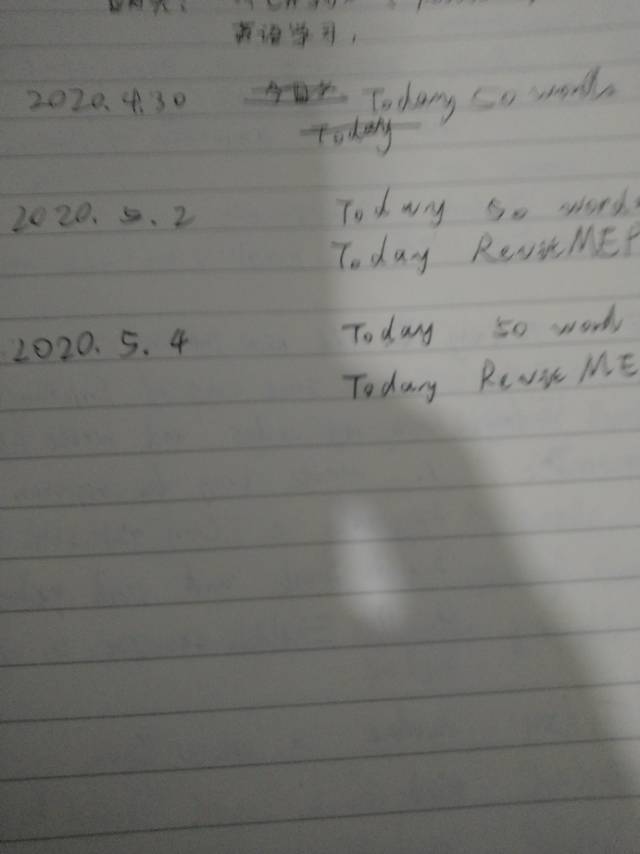 英语学习,
2020.4.30 Today 50 words
Today
2020.5.2 Today 50 words
Today Revise MEP
2020.5.4 Today 50 words
Today Revise ME